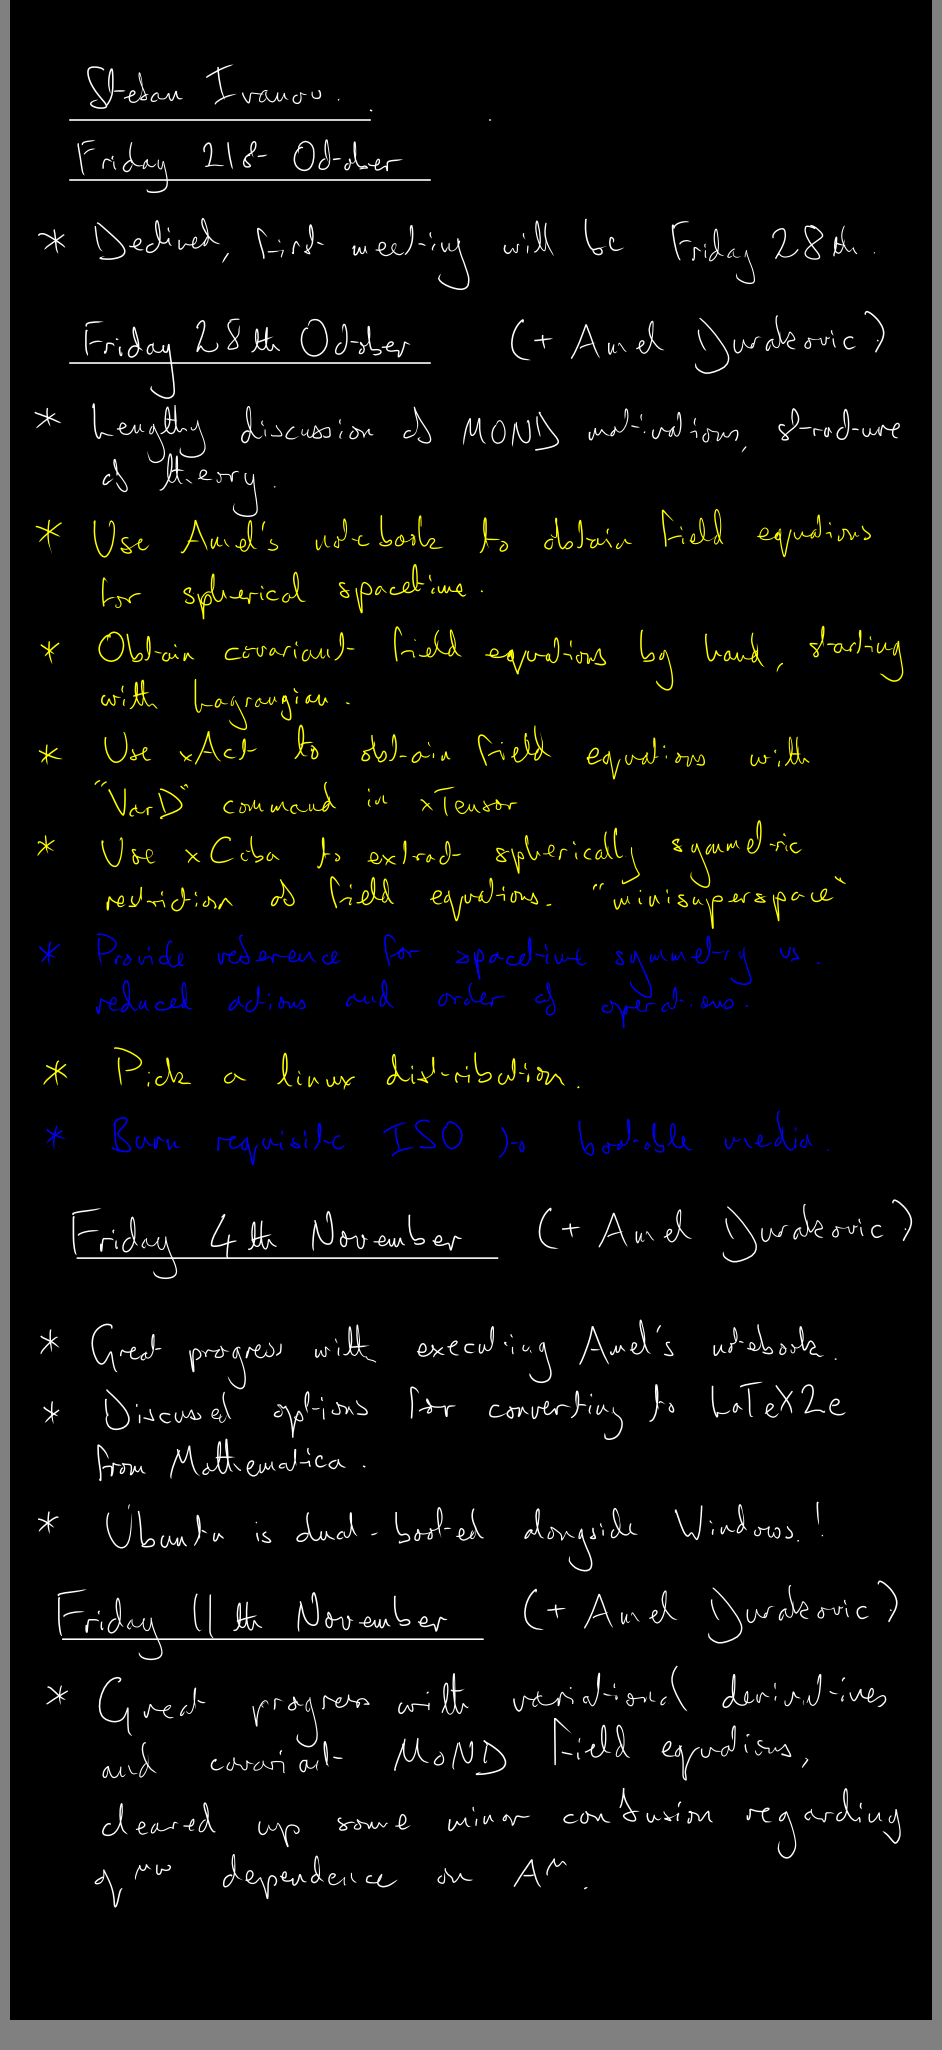 Stefan Ivanov.
Friday 21st October
* Declined, first meeting will be Friday 28th.
Friday 28th October (+ Amel Durakovic?)
* Lengthy discussion of MOND motivations, structure
of theory.
* Use Amel's notebook to obtain field equations
for spherical spacetime.
* Obtain covariant field equations by hand, starting
with Lagrangian.
* Use xAct to obtain field equations with
"VarD" command in xTensor
* Use xCoba to extract spherically symmetric
restriction of field equations. "minisuperspace"
* Provide reference for spacetime symmetry vs.
reduced actions and order of operations.
* Pick a linux distribution.
* Burn requisite ISO to bootable media.
Friday 4th November (+ Amel Durakovic?)
* Great progress with executing Amel's notebook.
* Discussed options for converting to LaTeX2e
from Mathematica.
* Ubuntu is dual-booted alongside Windows!
Friday 11th November (+ Amel Durakovic?)
* Great progress with variational derivatives
and covariant MOND field equations,
cleared up some minor confusion regarding
q^μν dependence on A^μ.